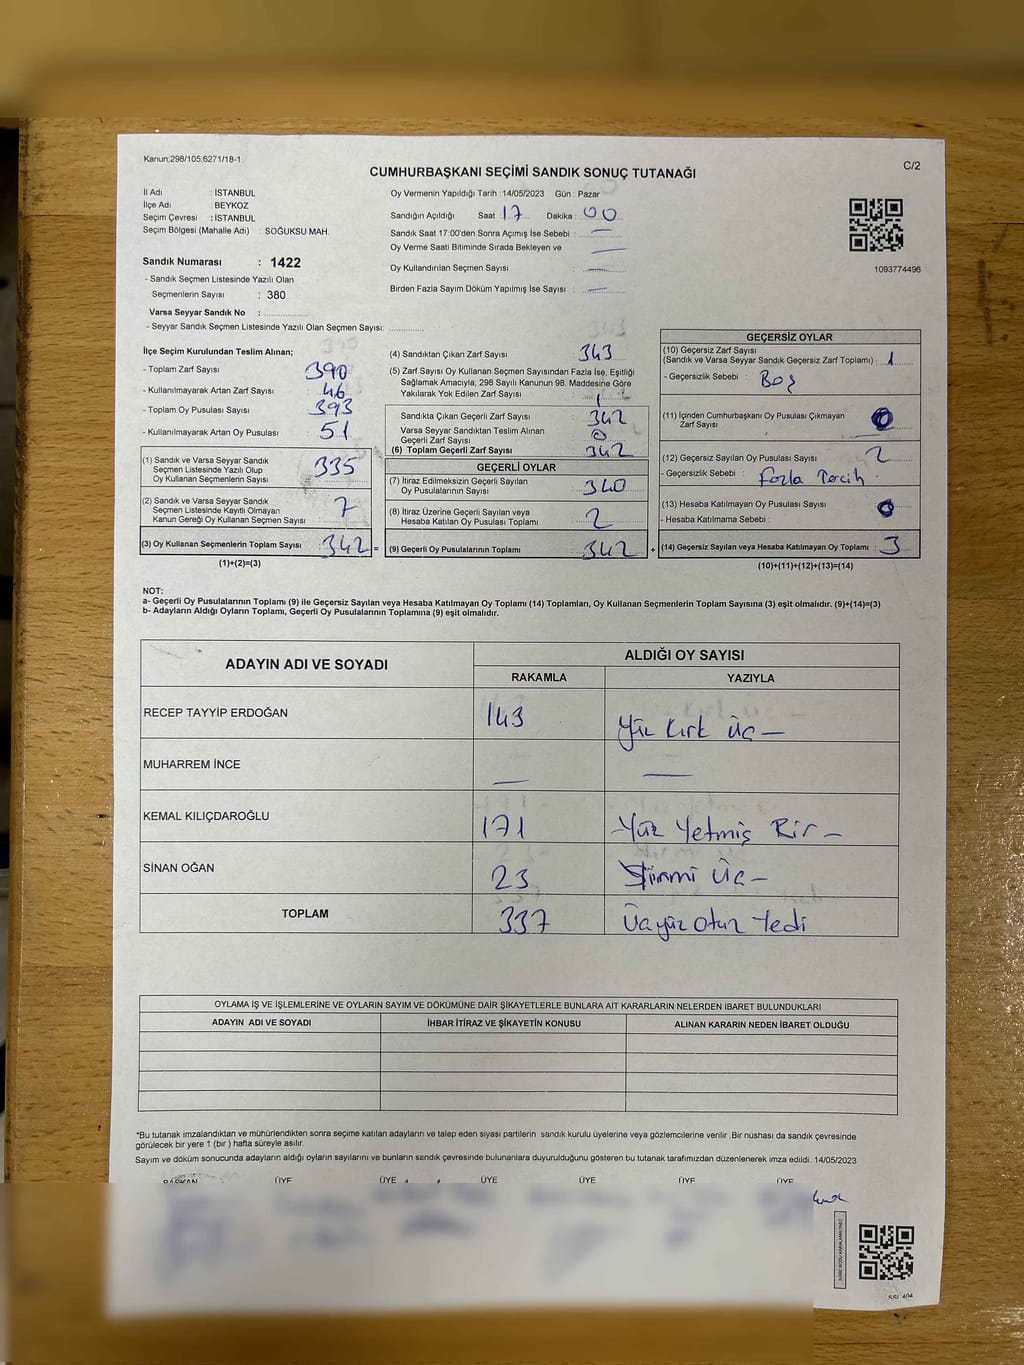 Kanun;298/105;6271/18-1
C/2
CUMHURBAŞKANI SEÇİMİ SANDIK SONUÇ TUTANAĞI
İl Adı : İSTANBUL
İlçe Adı : BEYKOZ
Seçim Çevresi : İSTANBUL
Seçim Bölgesi (Mahalle Adı) : SOĞUKSU MAH.
Oy Vermenin Yapıldığı Tarih : 14/05/2023 Gün : Pazar
Sandığın Açıldığı Saat 17 Dakika : 00
Sandık Saat 17:00'den Sonra Açımış İse Sebebi : —
Oy Verme Saati Bitiminde Sırada Bekleyen ve
Oy Kullandırılan Seçmen Sayısı : —
Birden Fazla Sayım Döküm Yapılmış İse Sayısı : —
1093774496
Sandık Numarası : 1422
- Sandık Seçmen Listesinde Yazılı Olan
Seçmenlerin Sayısı : 380
Varsa Seyyar Sandık No :
- Seyyar Sandık Seçmen Listesinde Yazılı Olan Seçmen Sayısı:
İlçe Seçim Kurulundan Teslim Alınan;
- Toplam Zarf Sayısı 390
- Kullanılmayarak Artan Zarf Sayısı 46
- Toplam Oy Pusulası Sayısı 393
- Kullanılmayarak Artan Oy Pusulası 51
(1) Sandık ve Varsa Seyyar Sandık
Seçmen Listesinde Yazılı Olup
Oy Kullanan Seçmenlerin Sayısı 335
(2) Sandık ve Varsa Seyyar Sandık
Seçmen Listesinde Kayıtlı Olmayan
Kanun Gereği Oy Kullanan Seçmen Sayısı 7
(3) Oy Kullanan Seçmenlerin Toplam Sayısı 342 =
(1)+(2)=(3)
(4) Sandıktan Çıkan Zarf Sayısı 343
(5) Zarf Sayısı Oy Kullanan Seçmen Sayısından Fazla İse, Eşitliği
Sağlamak Amacıyla; 298 Sayılı Kanunun 98. Maddesine Göre
Yakılarak Yok Edilen Zarf Sayısı : 1
Sandıkta Çıkan Geçerli Zarf Sayısı 342
Varsa Seyyar Sandıktan Teslim Alınan
Geçerli Zarf Sayısı 0
(6) Toplam Geçerli Zarf Sayısı 342
GEÇERLİ OYLAR
(7) İtiraz Edilmeksizin Geçerli Sayılan
Oy Pusulalarının Sayısı 340
(8) İtiraz Üzerine Geçerli Sayılan veya
Hesaba Katılan Oy Pusulası Toplamı 2
(9) Geçerli Oy Pusulalarının Toplamı 342 +
GEÇERSİZ OYLAR
(10) Geçersiz Zarf Sayısı
(Sandık ve Varsa Seyyar Sandık Geçersiz Zarf Toplamı) : 1
- Geçersizlik Sebebi : Boş
(11) İçinden Cumhurbaşkanı Oy Pusulası Çıkmayan
Zarf Sayısı
(12) Geçersiz Sayılan Oy Pusulası Sayısı 2
- Geçersizlik Sebebi : fazla Tercih
(13) Hesaba Katılmayan Oy Pusulası Sayısı : 0
- Hesaba Katılmama Sebebi :
(14) Geçersiz Sayılan veya Hesaba Katılmayan Oy Toplamı : 3
(10)+(11)+(12)+(13)=(14)
NOT:
a- Geçerli Oy Pusulalarının Toplamı (9) ile Geçersiz Sayılan veya Hesaba Katılmayan Oy Toplamı (14) Toplamları, Oy Kullanan Seçmenlerin Toplam Sayısına (3) eşit olmalıdır. (9)+(14)=(3)
b- Adayların Aldığı Oyların Toplamı, Geçerli Oy Pusulalarının Toplamına (9) eşit olmalıdır.
ADAYIN ADI VE SOYADI ALDIĞI OY SAYISI
RAKAMLA YAZIYLA
RECEP TAYYİP ERDOĞAN 143 Yüz kırk üç —
MUHARREM İNCE — —
KEMAL KILIÇDAROĞLU 171 -Yüz Yetmiş Bir —
SİNAN OĞAN 23 Yirmi Üç —
TOPLAM 337 Üçyüz Otuz Yedi
OYLAMA İŞ VE İŞLEMLERİNE VE OYLARIN SAYIM VE DÖKÜMÜNE DAİR ŞİKAYETLERLE BUNLARA AİT KARARLARIN NELERDEN İBARET BULUNDUKLARI
ADAYIN ADI VE SOYADI İHBAR İTİRAZ VE ŞİKAYETİN KONUSU ALINAN KARARIN NEDEN İBARET OLDUĞU
*Bu tutanak imzalandıktan ve mühürlendikten sonra seçime katılan adayların ve talep eden siyasi partilerin sandık kurulu üyelerine veya gözlemcilerine verilir. Bir nüshası da sandık çevresinde
görülecek bir yere 1 (bir) hafta süreyle asılır.
Sayım ve döküm sonucunda adayların aldığı oyların sayılarını ve bunların sandık çevresinde bulunanlara duyurulduğunu gösteren bu tutanak tarafımızdan düzenlenerek imza edildi. 14/05/2023
BAŞKAN ÜYE ÜYE ÜYE ÜYE ÜYE ÜYE